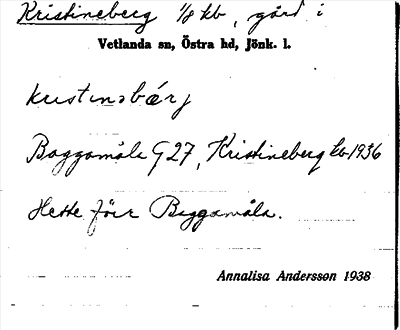 Kristineberg 1/8 kb, gård i
Vetlanda sn, Östra hd, Jönk. l.
kristinəbärj
Baggamåla G27, Kristineberg kb 1936
Hette förr Baggamåla.
Annalisa Andersson 1938